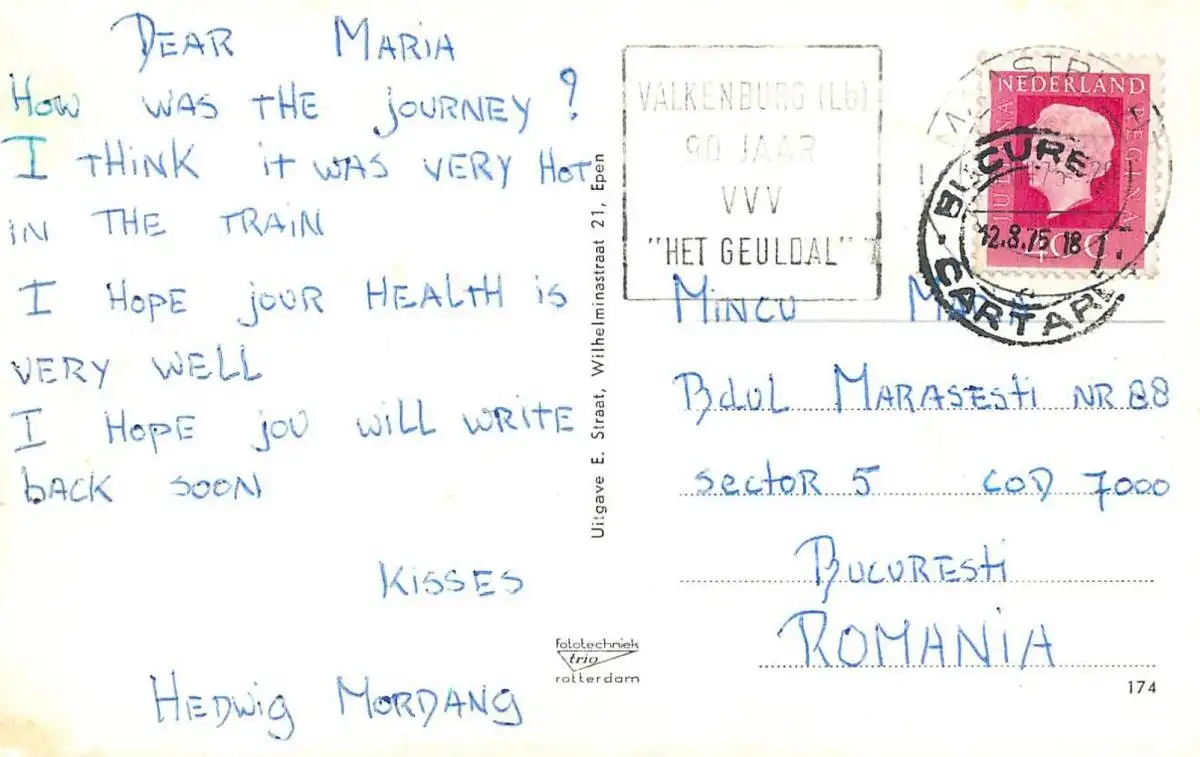 DEAR MARIA
HOW WAS THE JOURNEY?
I THINK it WAS VERY HOT
iN THE TRAIN
I HOPE jOUR HEALTH iS
VERY WELL
I HOPE jOU WiLL WRITE
bACK SOON
KiSSES
HEDWig MORDANG
Uitgave E. Straat, Wilhelminastraat 21, Epen
fototechniek
trio
rotterdam
VALKENBURG (Lb)
90 JAAR
VVV
"HET GEULDAL"
NEDERLAND
JULIANA REGINA
40c
BUCURE
12.8.75 18
CARTARE
MiNCU MARiA
Bdul MARASESti NR 88
SectoR 5 COD 7000
BUCURESti
ROMANiA
174